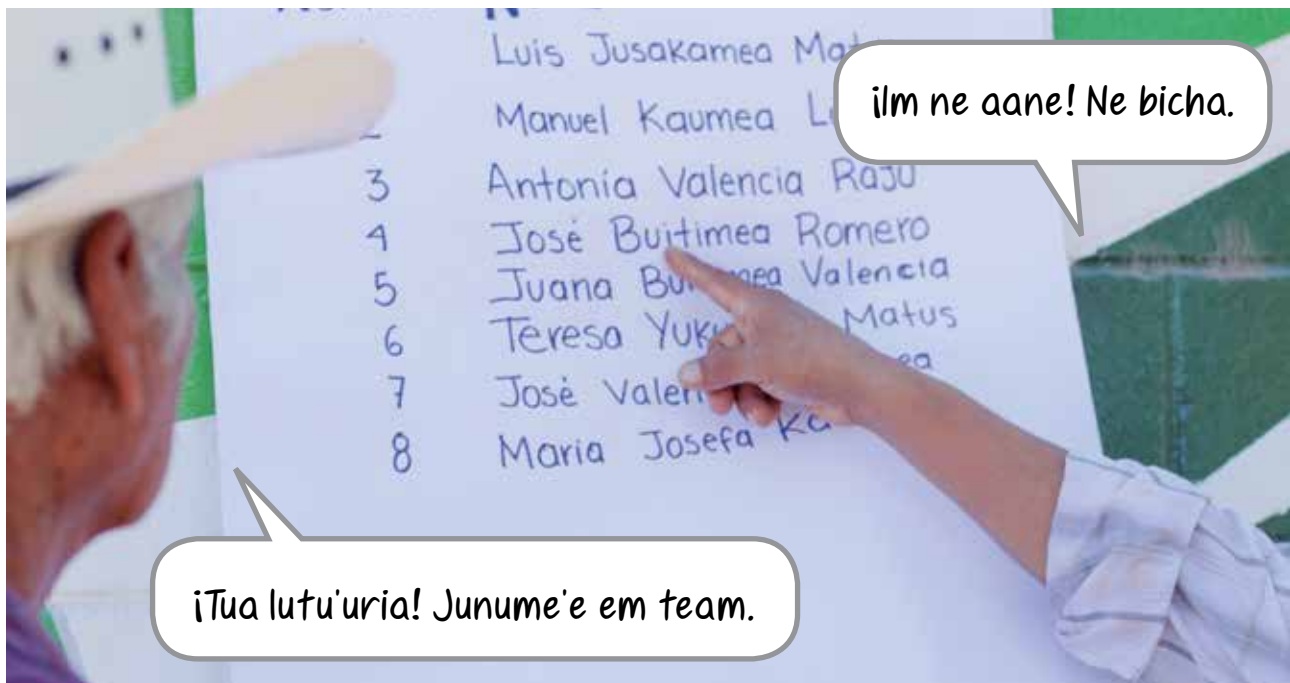 Luis Jusakamea
Manuel Kaumea
3 Antonía Valencia Raju
4 José Buitimea Romero
5 Juana Valencia
6 Teresa Matus
7 José
8 Maria Josefa
¡Im ne aane! Ne bicha.
¡Tua lutu'uria! Junume'e em team.